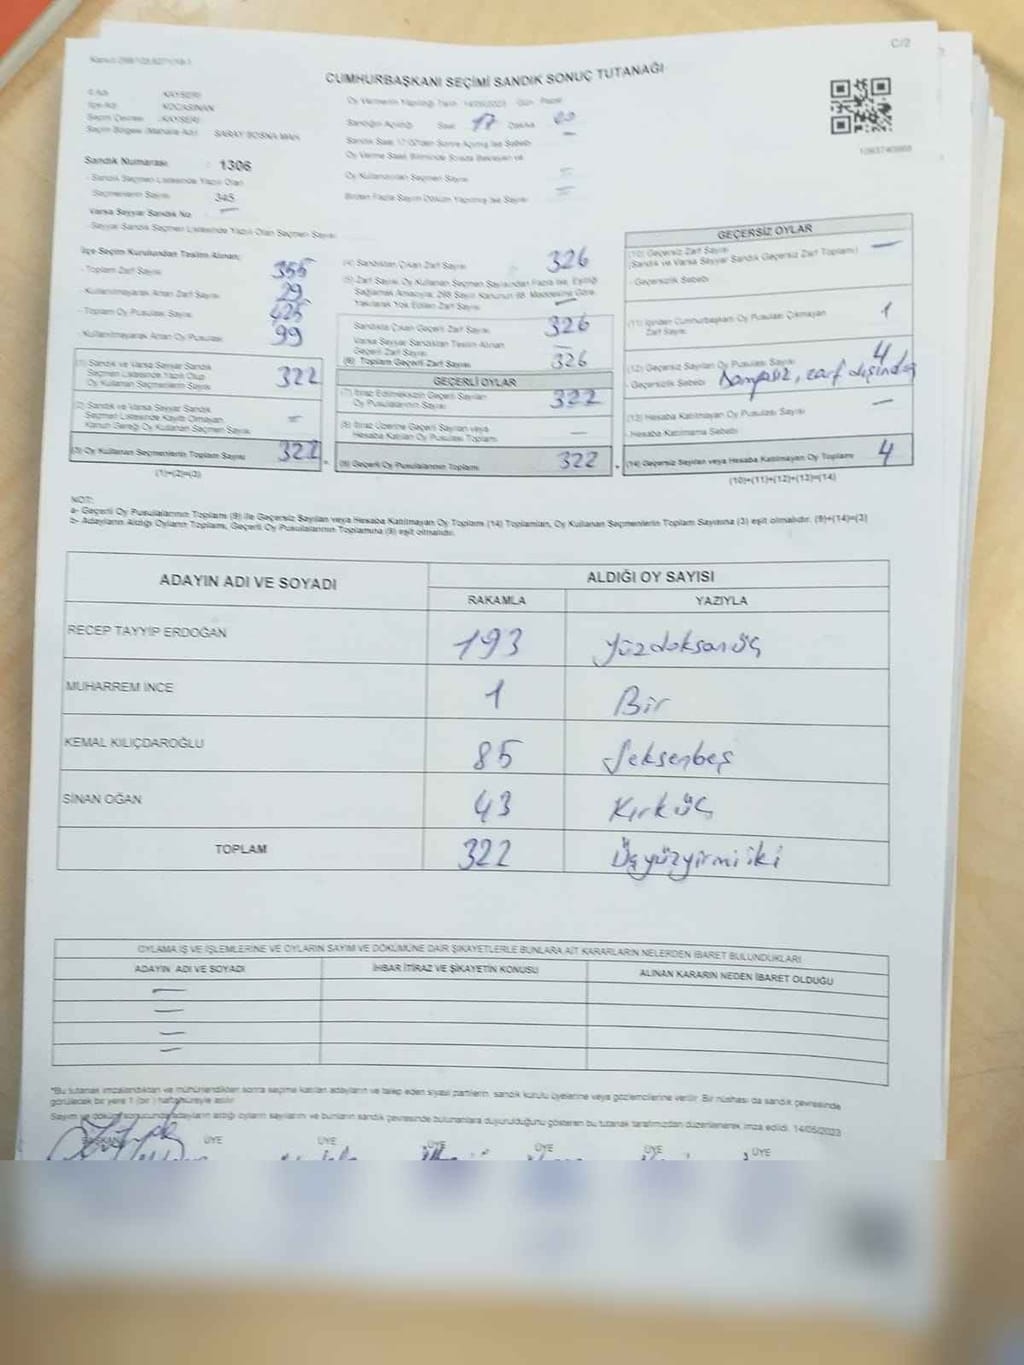 C/2
CUMHURBAŞKANI SEÇİMİ SANDIK SONUÇ TUTANAĞI
İl Adı : KAYSERİ
İlçe Adı : KOCASİNAN
Seçim Çevresi : KAYSERİ
Seçim Bölgesi (Mahalle Adı) : SARAY BOSNA MAH.
Oy Vermenin Yapıldığı Tarih : 14/05/2023 Gün : Pazar
Sandığın Açıldığı Saat 17 Dakika 00
Sandık Saat 17:00'den Sonra Açılmış İse Sebebi
Sandık Numarası : 1306
- Sandık Seçmen Listesinde Yazılı Olan
Seçmenlerin Sayısı : 345
Oy Kullandırılan Seçmen Sayısı
Birden Fazla Sayım Döküm Yapılmış İse Sayısı
Varsa Seyyar Sandık No : —
- Seyyar Sandık Seçmen Listesinde Yazılı Olan Seçmen Sayısı
İlçe Seçim Kurulundan Teslim Alınan;
- Toplam Zarf Sayısı 355
- Kullanılmayarak Artan Zarf Sayısı 29
- Toplam Oy Pusulası Sayısı 425
- Kullanılmayarak Artan Oy Pusulası 99
(1) Sandık ve Varsa Seyyar Sandık
Seçmen Listesinde Yazılı Olup
Oy Kullanan Seçmenlerin Sayısı 322
(2) Sandık ve Varsa Seyyar Sandık
Seçmen Listesinde Kayıtlı Olmayan
Kanun Gereği Oy Kullanan Seçmen Sayısı =
(3) Oy Kullanan Seçmenlerin Toplam Sayısı 322
(1)+(2)=(3)
(4) Sandıktan Çıkan Zarf Sayısı 326
(5) Zarf Sayısı Oy Kullanan Seçmen Sayısından Fazla İse, Eşitliği
Sağlamak Amacıyla, 298 Sayılı Kanunun 98. Maddesine Göre,
Yakılarak Yok Edilen Zarf Sayısı —
Sandıkta Çıkan Geçerli Zarf Sayısı 326
Varsa Seyyar Sandıktan Teslim Alınan
Geçerli Zarf Sayısı —
(6) Toplam Geçerli Zarf Sayısı 326
GEÇERLİ OYLAR
(7) İtiraz Edilmeksizin Geçerli Sayılan
Oy Pusulalarının Sayısı 322
(8) İtiraz Üzerine Geçerli Sayılan veya
Hesaba Katılan Oy Pusulası Toplamı —
(9) Geçerli Oy Pusulalarının Toplamı 322
GEÇERSİZ OYLAR
(10) Geçersiz Zarf Sayısı
(Sandık ve Varsa Seyyar Sandık Geçersiz Zarf Toplamı) —
- Geçersizlik Sebebi
(11) İçinden Cumhurbaşkanı Oy Pusulası Çıkmayan
Zarf Sayısı 1
(12) Geçersiz Sayılan Oy Pusulası Sayısı 4
- Geçersizlik Sebebi zarf dışında
(13) Hesaba Katılmayan Oy Pusulası Sayısı —
- Hesaba Katılmama Sebebi
(14) Geçersiz Sayılan veya Hesaba Katılmayan Oy Toplamı 4
(10)+(11)+(12)+(13)=(14)
NOT:
a- Geçerli Oy Pusulalarının Toplamı (9) ile Geçersiz Sayılan veya Hesaba Katılmayan Oy Toplam (14) Toplamları, Oy Kullanan Seçmenlerin Toplam Sayısına (3) eşit olmalıdır. (9)+(14)=(3)
b- Adayların Aldığı Oyların Toplamı, Geçerli Oy Pusulalarının Toplamına (9) eşit olmalıdır.
ADAYIN ADI VE SOYADI
ALDIĞI OY SAYISI
RAKAMLA YAZIYLA
RECEP TAYYİP ERDOĞAN 193 Yüzdoksanüç
MUHARREM İNCE 1 Bir
KEMAL KILIÇDAROĞLU 85 Seksenbeş
SİNAN OĞAN 43 Kırküç
TOPLAM 322 Üçyüzyirmiiki
OYLAMA İŞ VE İŞLEMLERİNE VE OYLARIN SAYIM VE DÖKÜMÜNE DAİR ŞİKAYETLERLE BUNLARA AİT KARARLARIN NELERDEN İBARET BULUNDUKLARI
ADAYIN ADI VE SOYADI İHBAR İTİRAZ VE ŞİKAYETİN KONUSU ALINAN KARARIN NEDEN İBARET OLDUĞU
—
—
—
—
*Bu tutanak imzalandıktan ve mühürlendikten sonra seçime katılan adayların ve talep eden siyasi partilerin, sandık kurulu üyelerine veya gözlemcilerine verilir. Bir nüshası da sandık çevresinde
görülecek bir yere 1 (bir) hafta süreyle asılır.
Sayım ve döküm sonucunda adayların aldığı oyların sayılarını ve bunların sandık çevresinde bulunanlara duyurulduğunu gösteren bu tutanak tarafımızdan düzenlenerek, imza edildi. 14/05/2023
BAŞKAN ÜYE ÜYE ÜYE ÜYE ÜYE ÜYE